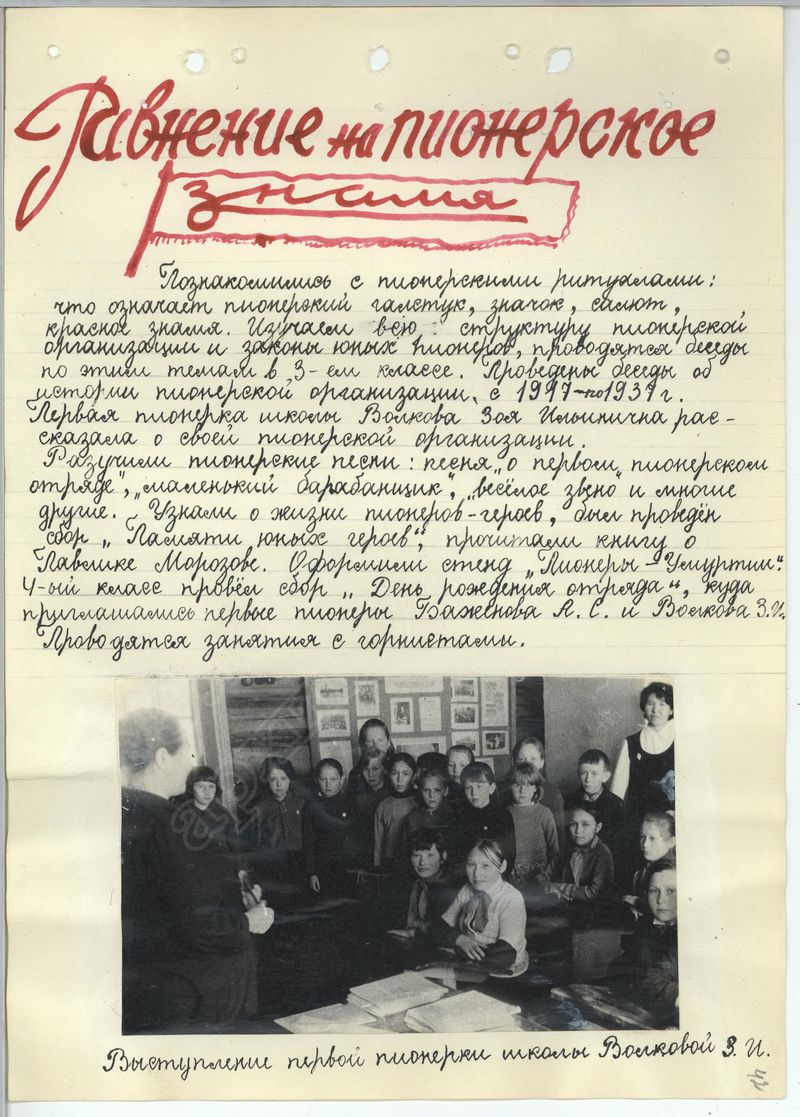 Равнение на пионерское
знамя
Познакомились с пионерскими ритуалами:
что означает пионерский галстук, значок, салют,
красное знамя. Изучаем всю структуру пионерской
организации и законы юных пионеров, проводятся беседы
по этим темам в 3-ем классе. Проведены беседы об
истории пионерской организации, с 1917-по 1937 г.
Первая пионерка школы Волкова Зоя Ильинична рас-
сказала о своей пионерской организации.
Разучили пионерские песни: песня „о первом пионерском
отряде“, „маленький барабанщик“, „весёлое звено“ и многие
другие. Узнали о жизни пионеров-героев, был проведён
сбор „Памяти юных героев“, прочитали книгу о
Павлике Морозове. Оформили стенд „Пионеры – Удмуртии“.
4-ый класс провёл сбор „День рождения отряда“, куда
приглашались первые пионеры Баженова А. С. и Волкова З.И.
Проводятся занятия с горнистами.
Выступление первой пионерки школы Волковой З. И.